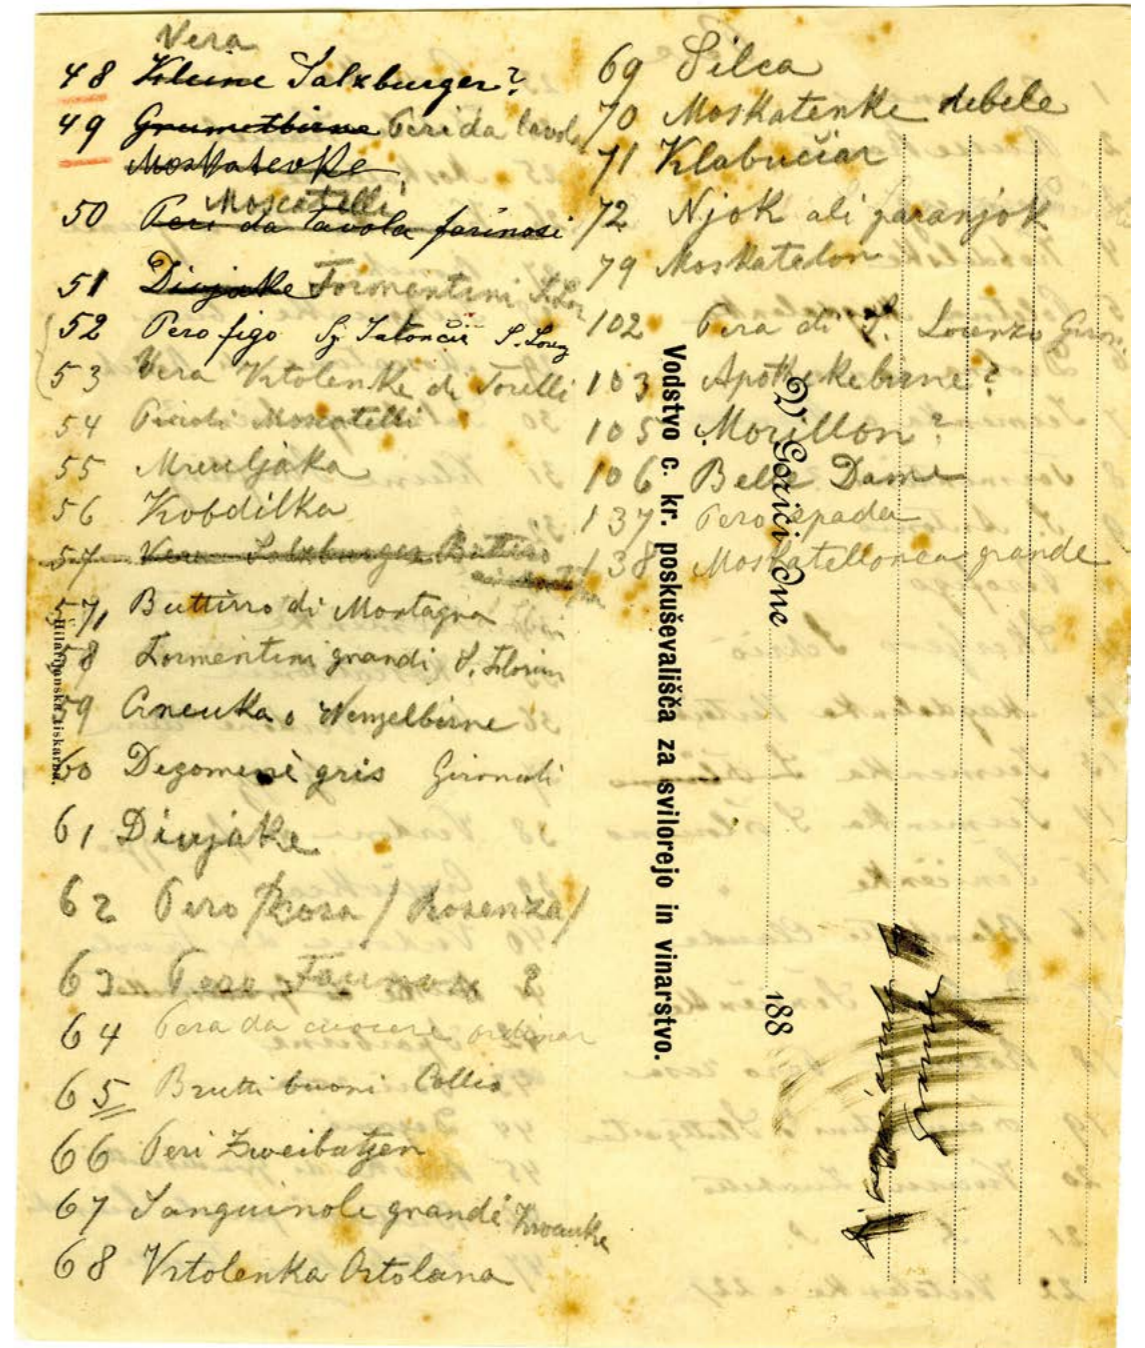 Vera
48 Kleine Salzburger?
49 Grumetbirne Peri da tavola
Moskatevke
Moscatelli
50 Peri da tavola farinosi
51 Divjake Formentini
52 Pero figo S. Lor
53 Vera Vrtolenke di Torelli
54 Piccoli Moscatelli
55 Mreuljaka
56 Kobdilka
57 Vera Salzburger Buttiro
57, Buttirro di Montagna
58 Formentini grandi S. Florian
59 Crneuka o Wenzelbirne
60 Degomenè gris Gironcoli
61 Divjake
62 Pero Rosa / Rosenza /
63 Pero ?
64 Pera da cuocere ordinar
65 Brutti buoni Collio
66 Peri Zweibatzen
67 Sanguinole grandi
68 Vrtolenka Ortolana
69 Silca
70 Moskatenke debele
71 Klabučiar
72 Njok ali zaranjok
79 Moskatedon
102 Pera di S. Lorenzo Giron.
103 Apothekebirne?
105 Morillon?
106 Belle Dame
137 Pero spada
138 Moskatellonca grande
Vodstvo c. kr. poskuševališča za svilorejo in vinarstvo.
V Gorici dne
188
Hilarijanska tiskarna.